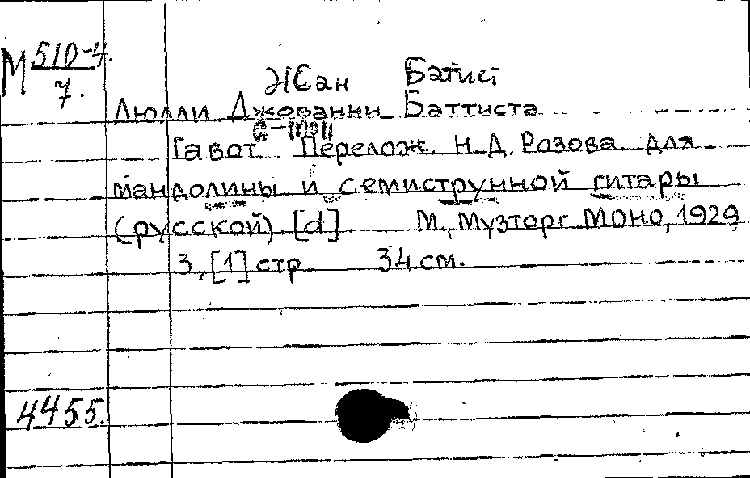 М 510-4
7.
Жан Батист
Люлли Джованни Баттиста
Гавот Перелож. Н.Д. Разова для
мандолины и семиструнной гитары
(русской) [d] М., Музторг МОНО, 1929
3, [1] стр 34 см.
4455.